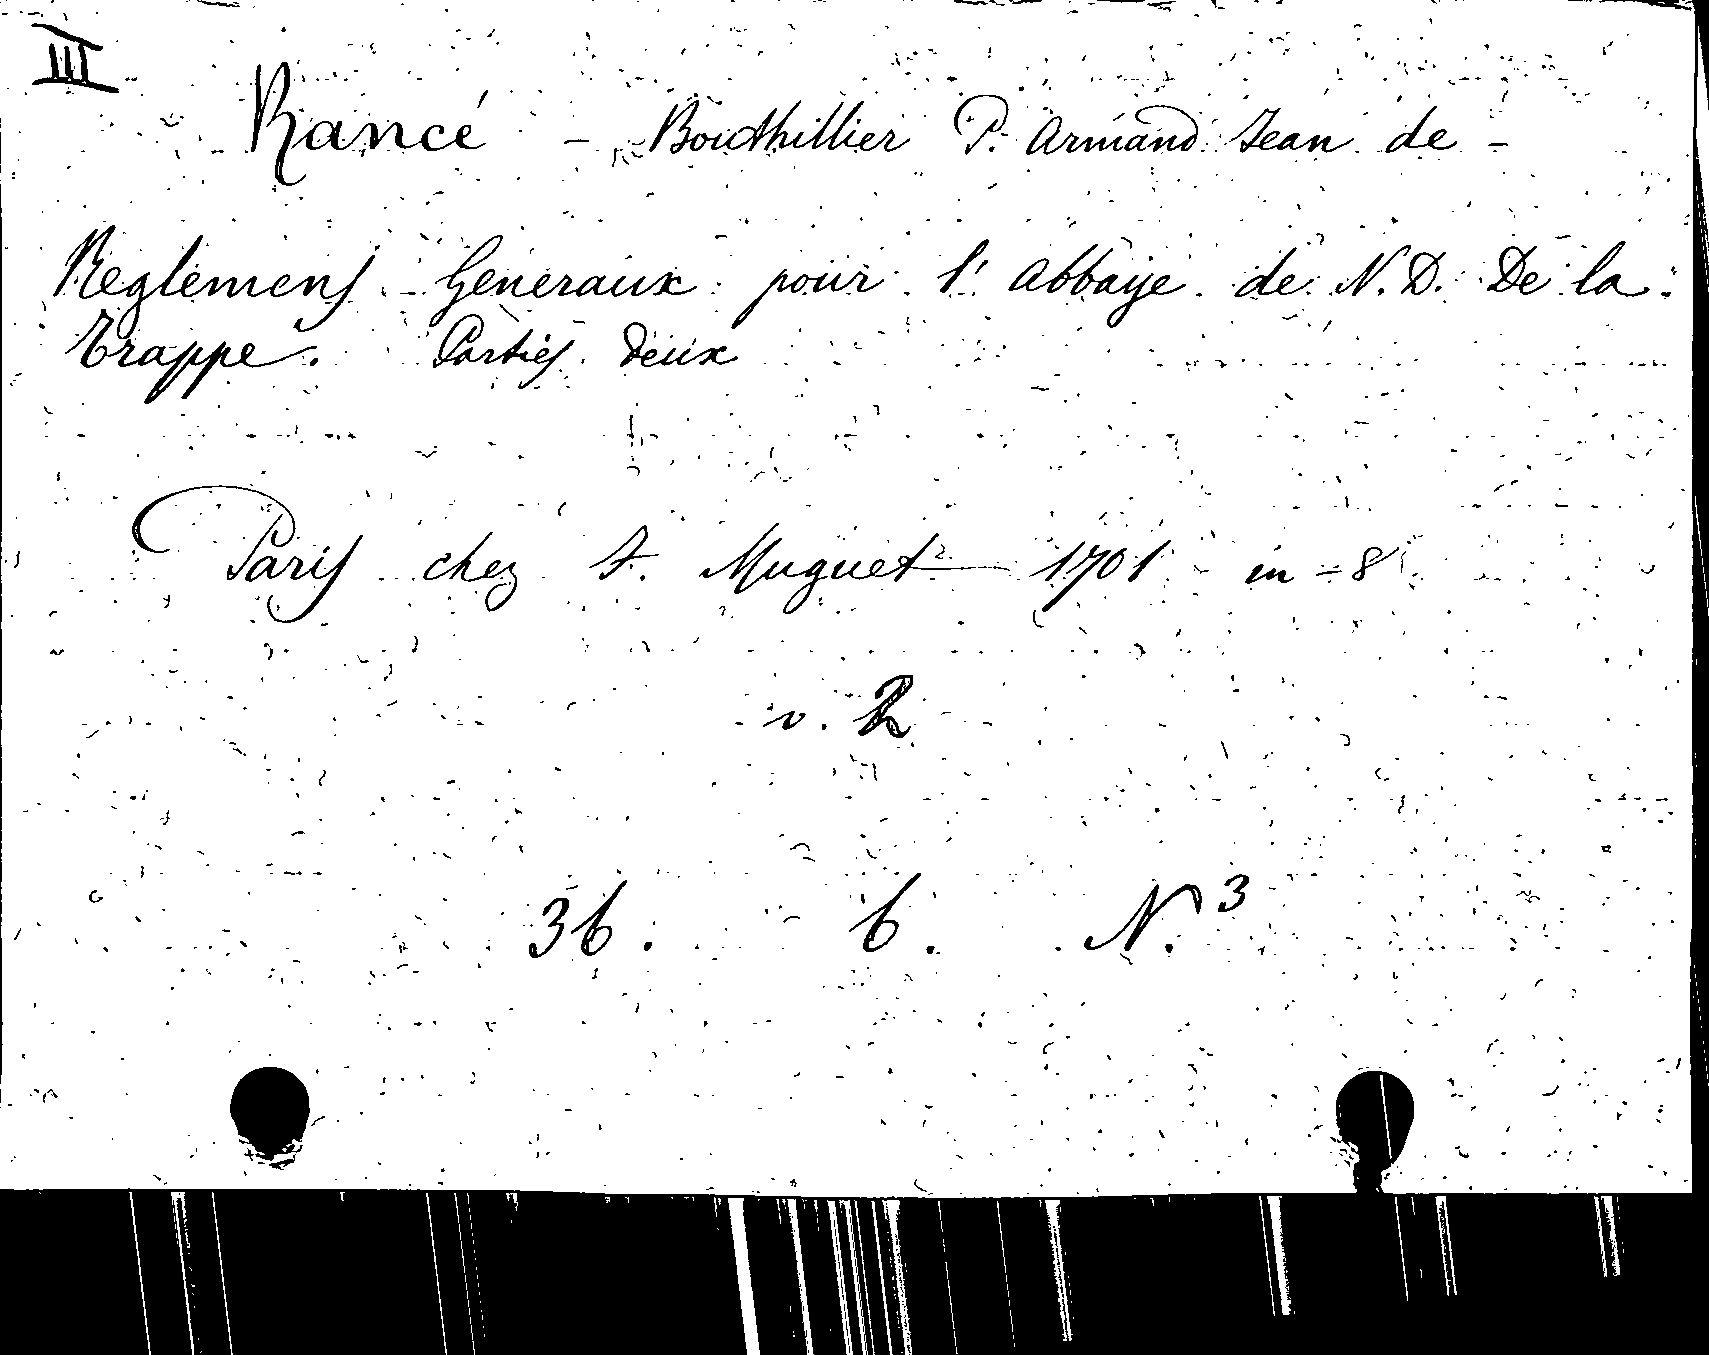 III
Rancé - Bouthillier P. Armand Jean de -
Reglemens Generaux pour l'abbaye de N. D. De la
Trappe. Parties deux
Paris chez F. Muguet 1701 in-8
v. 2
36. 6. N. 3